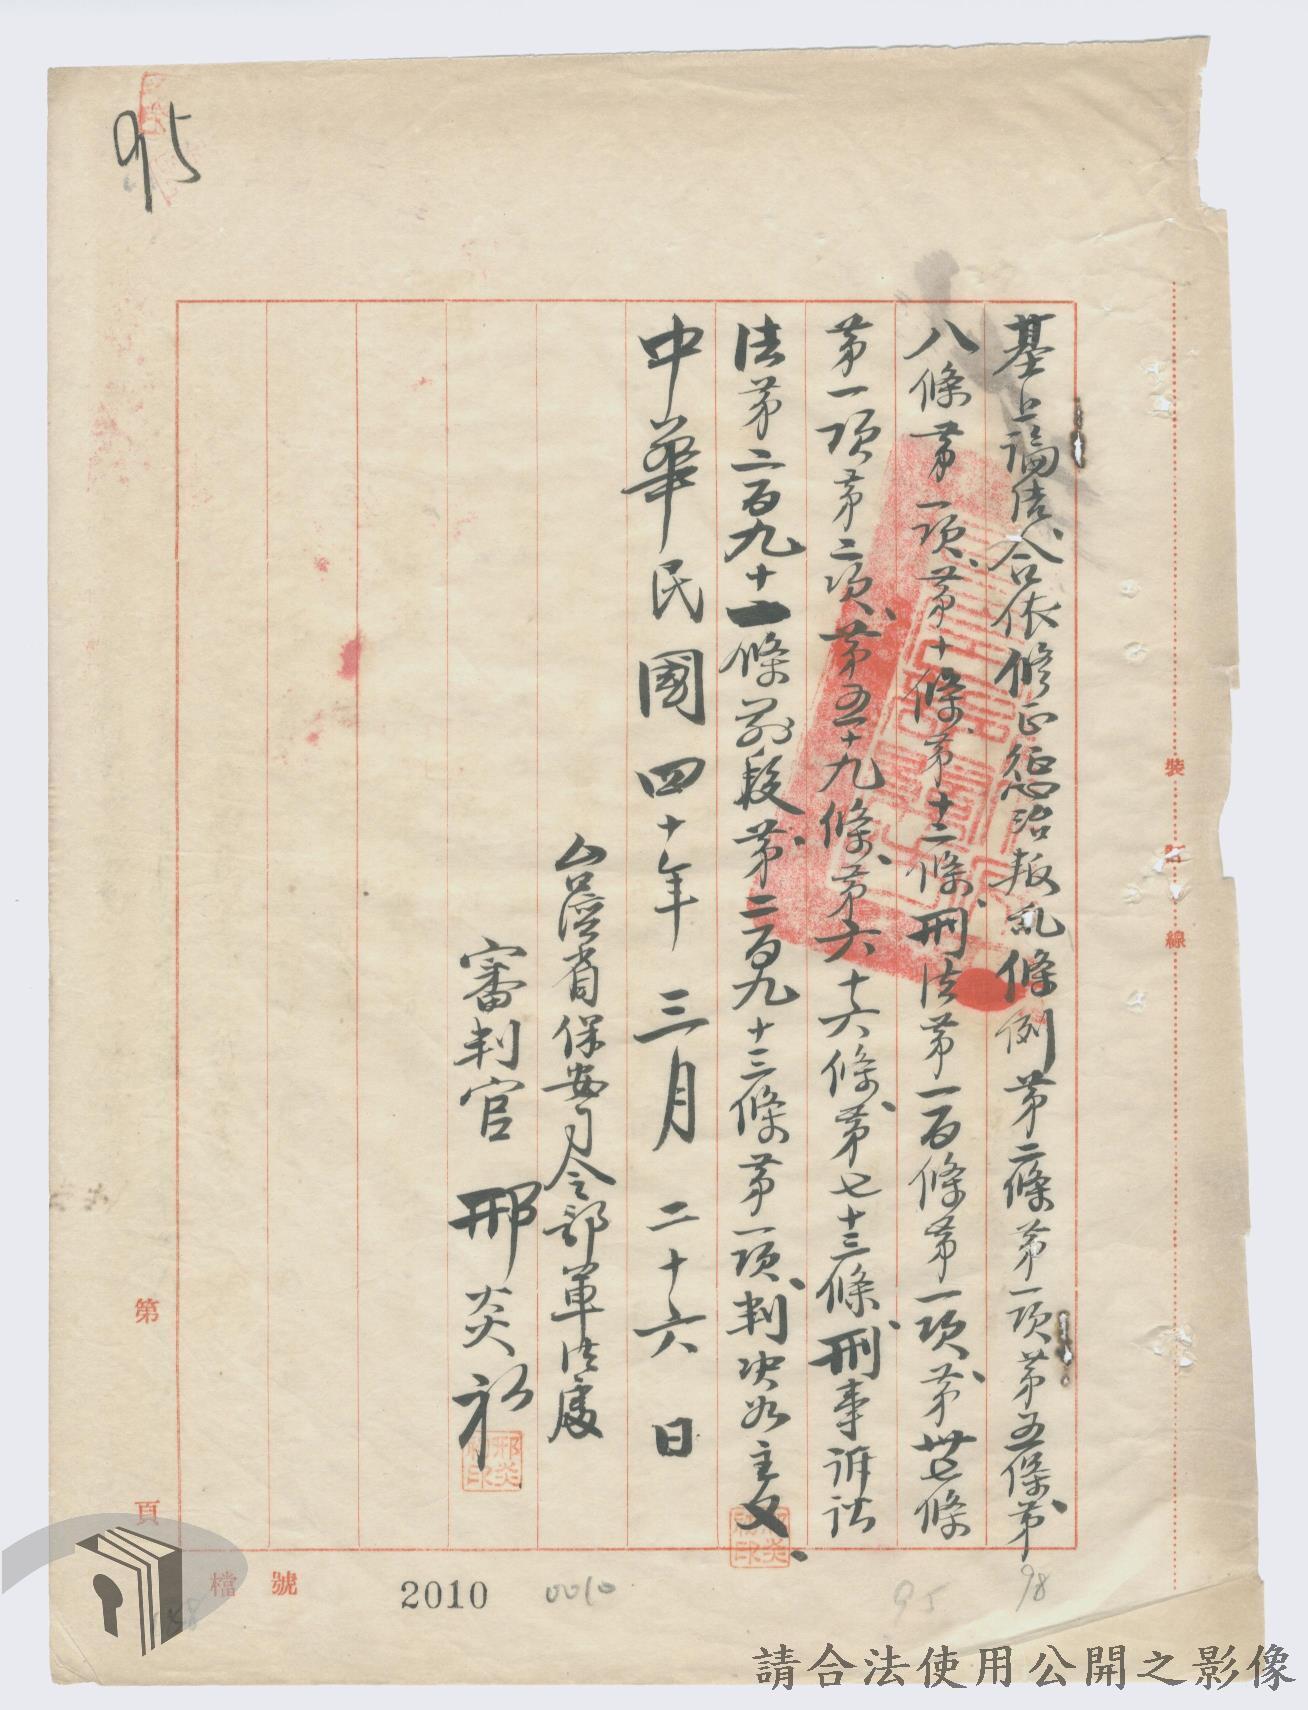 95
基上論結合依修正懲治叛乱條例第二條第一項第五條第
八條第一項、第十條、第十二條、刑法第一百條第一項、第卅七條
第一項第二項、第五十九條、第六十六條、第七十三條、刑事訴訟
法第二百九十一條前段、第二百九十三條第一項、判決如主文、
中華民國四十年三月二十六日
台灣省保安司令部軍法處
審判官 邢炎初
邢炎初印
邢炎初印
裝
訂
線
第
頁
檔 號
2010
0010
95
98
請合法使用公開之影像